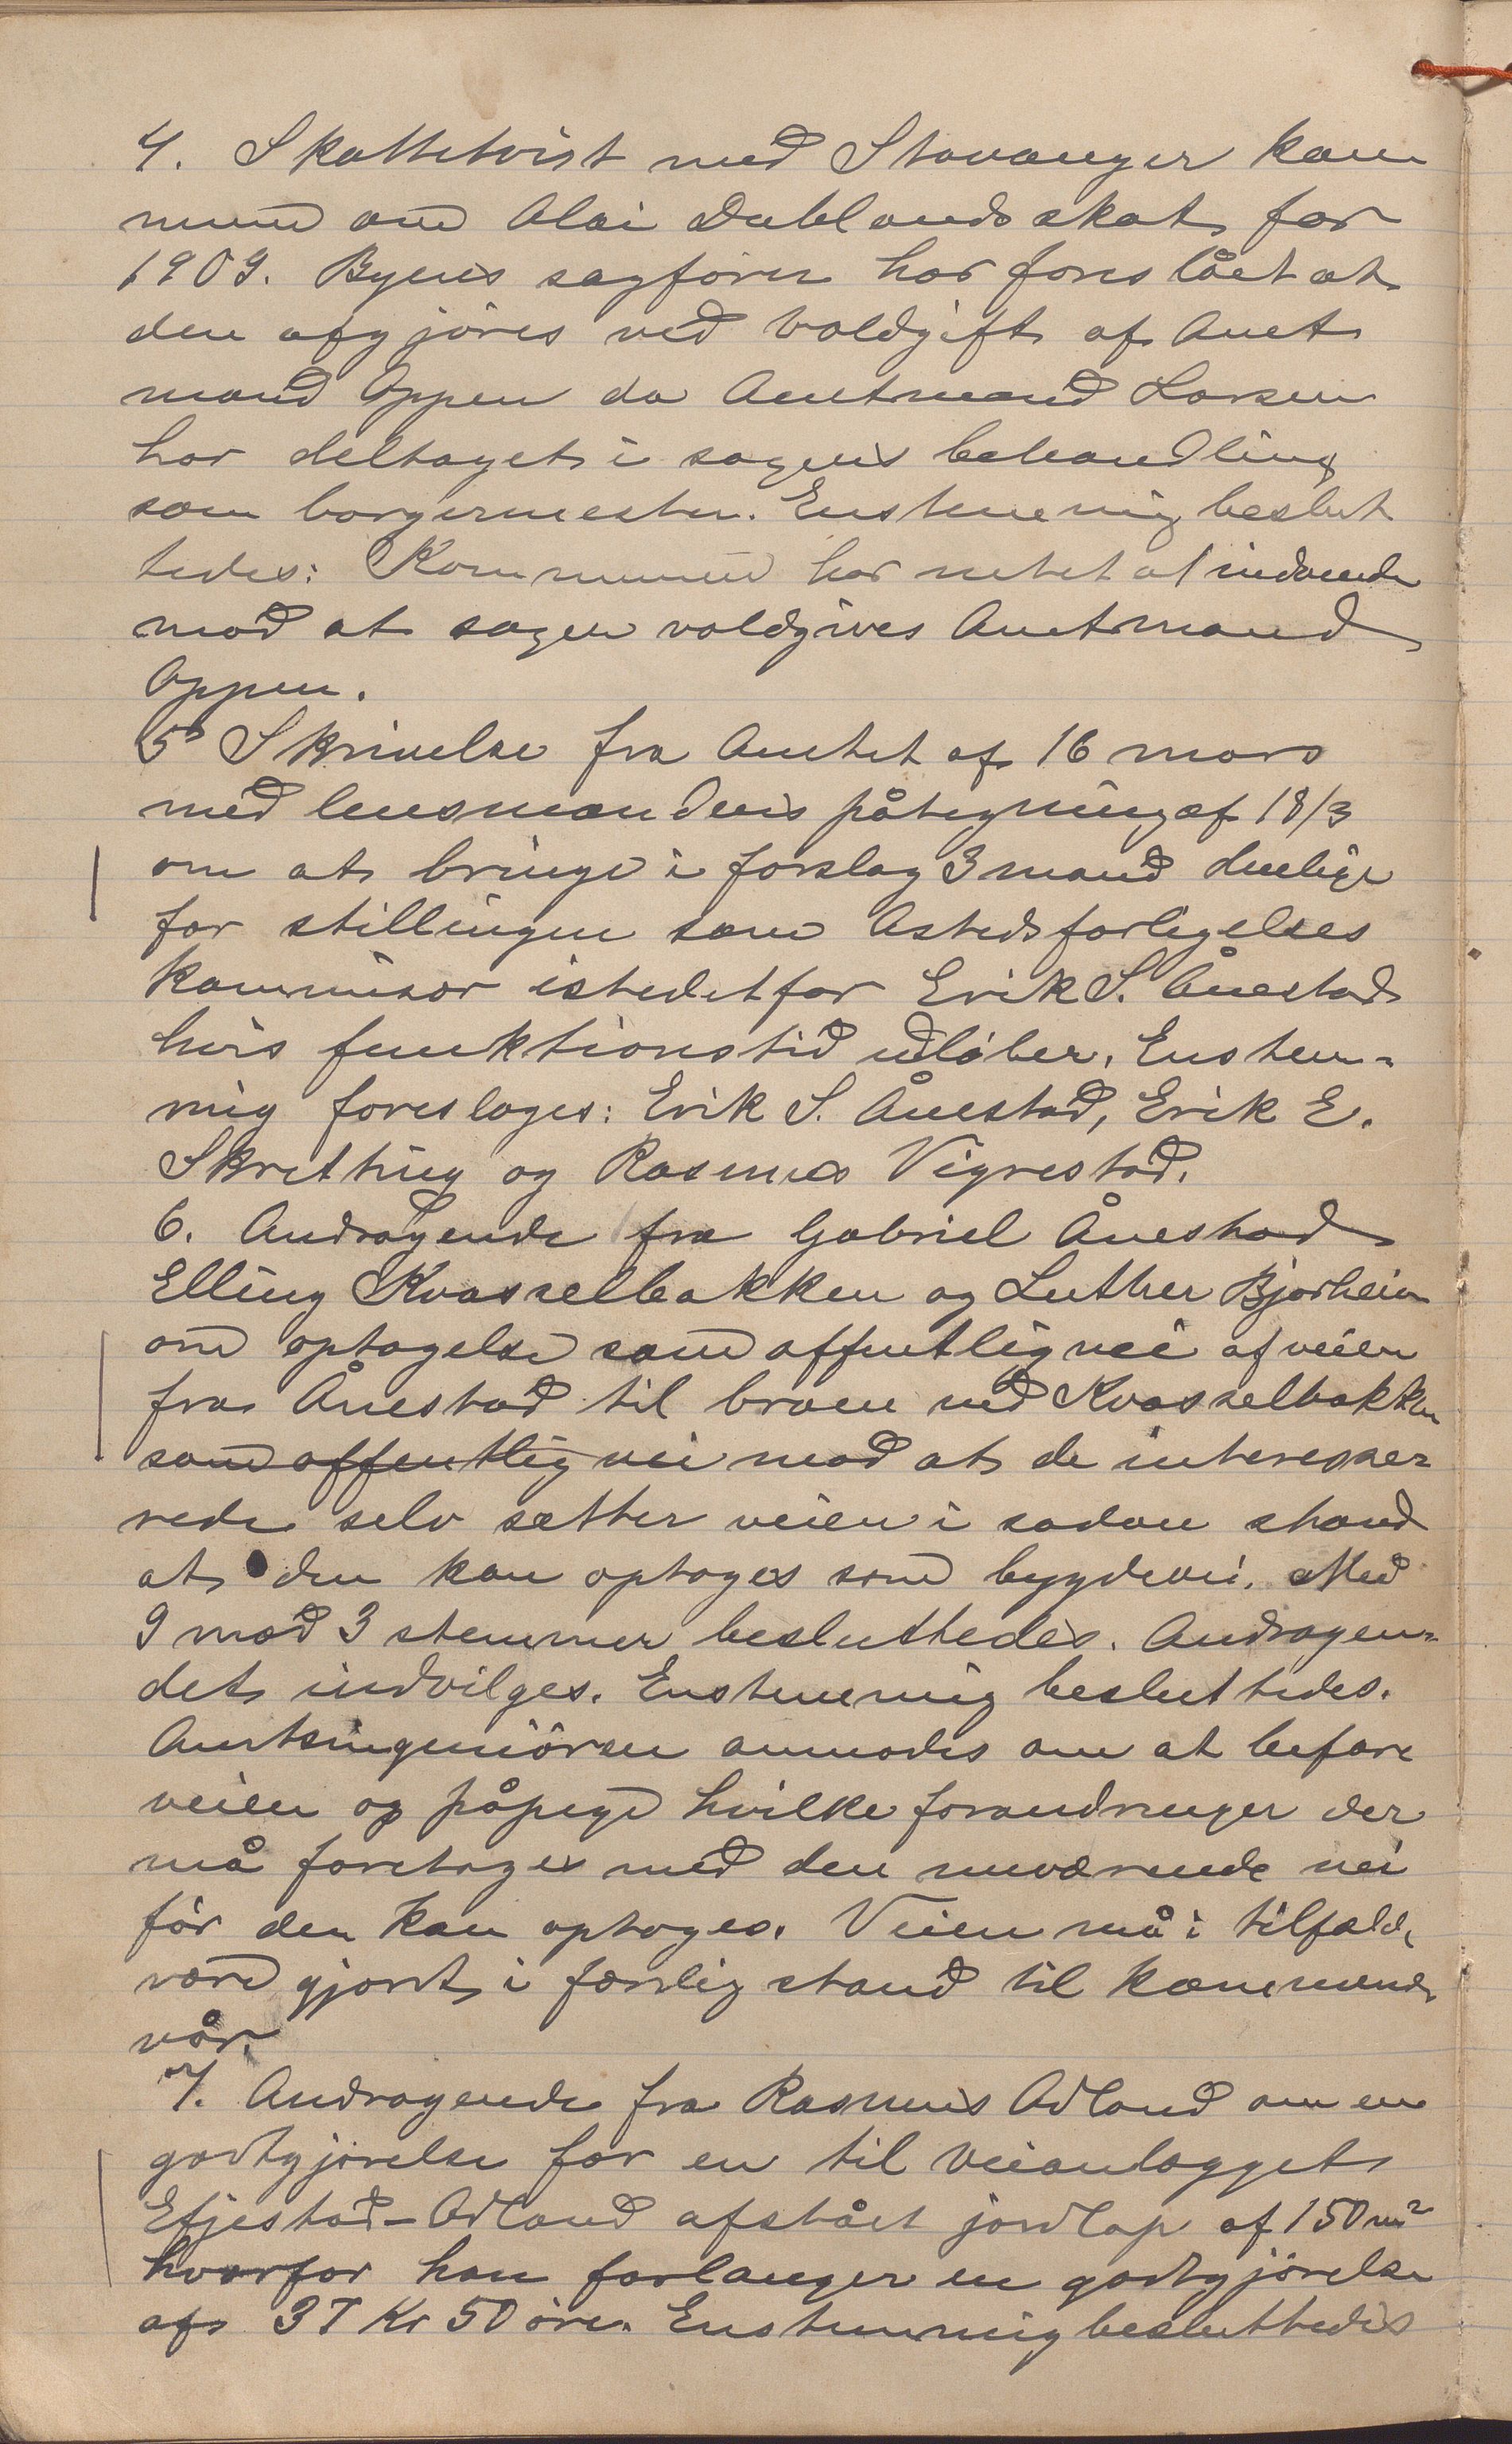 4. Skattetvist med Stavanger kom
mune om Olai Dublands skat for
1909. Byens sagförer har foreslået at
den afgjöres ved voldgift af Amt
mand Oppen da Amtmand Larsen
har deltaget i sagens behandling
som borgermester. Enstemmig beslut
tedes: Kommunen har intet at indvende
mod at sagen voldgives Amtmand
Oppen.
5 Skrivelse fra Amtet af 16 mars
med lensmandens påtegning af 18/3
om at bringe i forslag 3 mand duelige
for stillingen som Astedsforligelses
kommisær istedetfor Erik S. Ånestad
hvis funktionstid udløber. Enstem-
mig foreslages: Erik S. Ånestad, Erik E.
Skretting og Rasmus Vigrestad.
6. Andragende fra Gabriel Ånestad
Elling Kvasselbakken og Luther Bjorheim
om optagelse som offentlig vei af veien
fra Ånestad til broen ved Kvasselbakken
som offentlig vei mod at de interesser-
rede selv sætter veien i sadan stand
at den kan optages som bygdevei. Med
9 mod 3 stemmer besluttedes. Andragen-
det indvilges. Enstemmig besluttedes.
Amtsingeniören anmodes om at befare
veien og påpege hvilke forandringer der
må foretages med den nuværende vei
för den kan optages. Veien må i tilfælde
være gjort i færdig stand til kommende
vår.
7. Andragende fra Rasmus Adland om en
godtgjörelse for en til veianlægget
Efjestad-Adland afstået jordlap af 150 m²
hvorfor han forlanger en godtgjörelse
af 37 Kr 50 öre. Enstemmig besluttedes